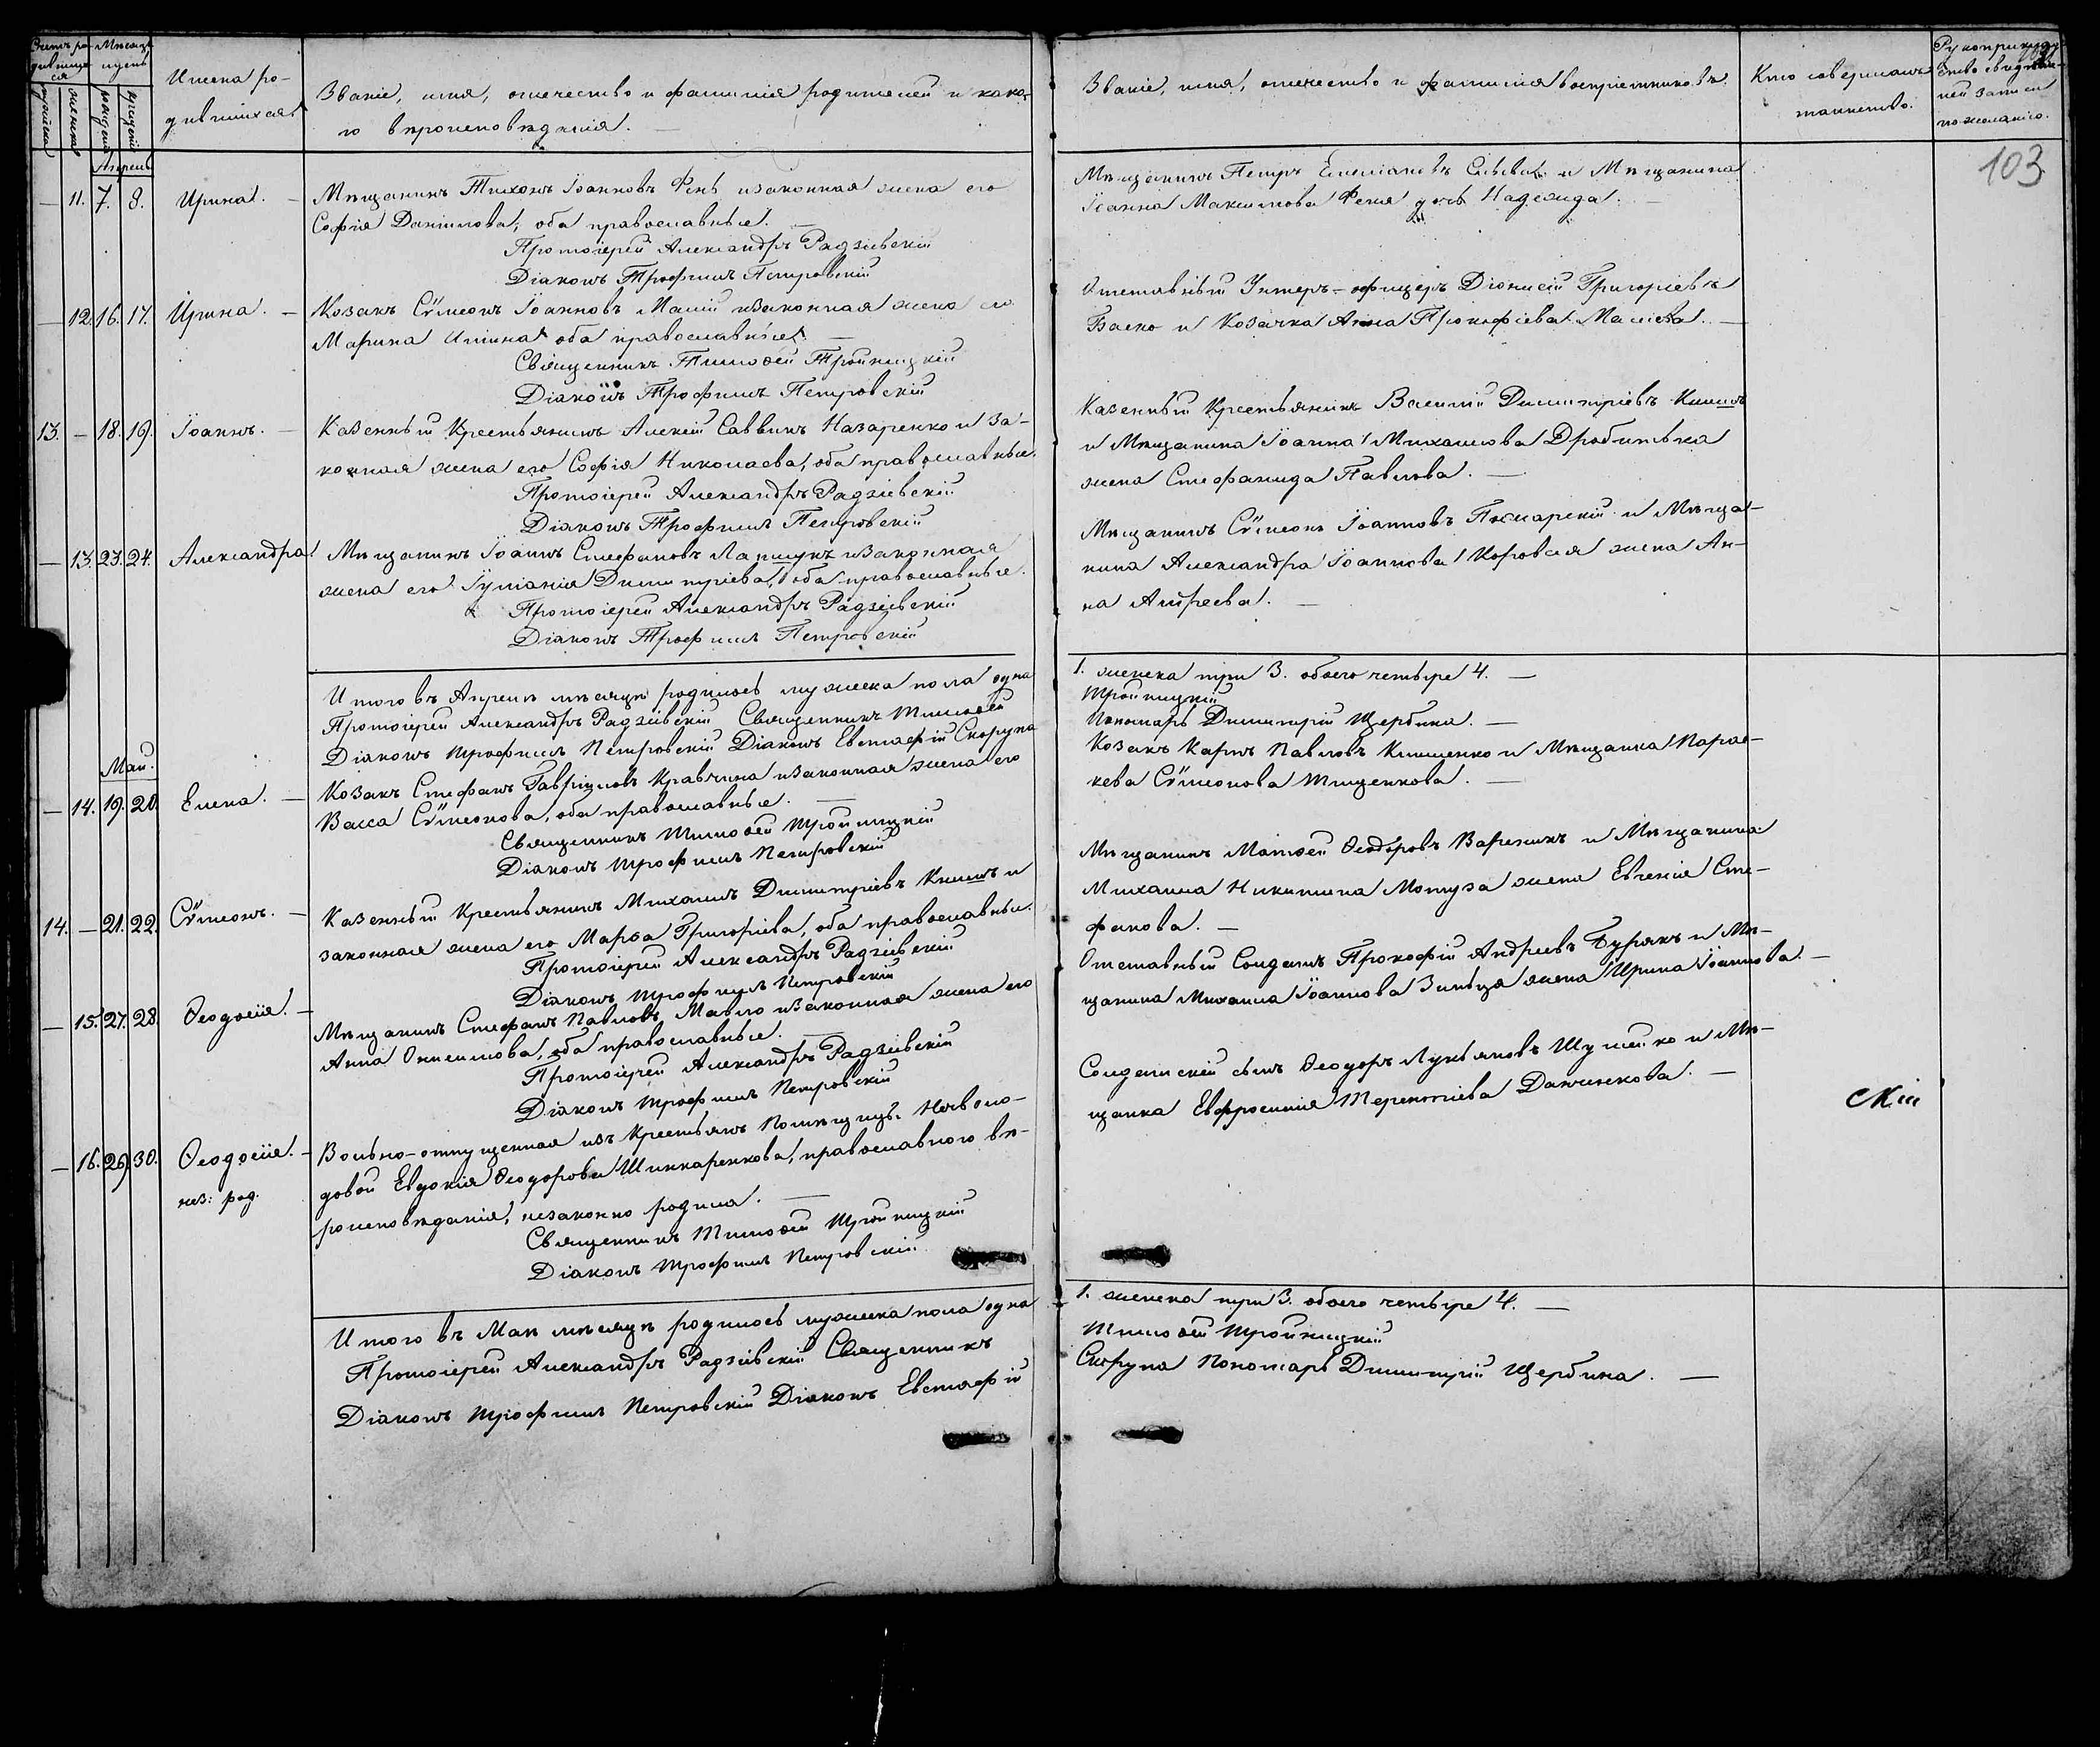 Счетъ ро-
дившихся
Мѣсяцъ
и день
мужеска
женска
рожденія
крещенія
Имена ро-
дившихся.
Званіе, имя, отечество и фамилія родителей и како-
го вѣроисповѣданія. —
Апрель
— 11. 7. 8. Ирина. —
Мѣщанинъ Тихонъ Іоанновъ Фень и законная жена его
Софія Даніилова, оба православные. —
Протоіерей Александръ Радзіевскій
Діаконъ Трофимъ Петровскій
— 12. 16. 17. Ирина. —
Козакъ Сѵмеонъ Іоанновъ Малій и законная жена его
Марина Иліина оба православные. —
Священникъ Тимоѳей Тройницкій
Діаконъ Трофимъ Петровскій
13. — 18. 19. Іоаннъ. —
Казенный Крестьянинъ Алексій Саввинъ Назаренко и за-
конная жена его Софія Николаева, оба православные.
Протоіерей Александръ Радзіевскій
Діаконъ Трофимъ Петровскій
— 13. 23. 24. Александра.
Мѣщанинъ Іоаннъ Стефановъ Лапшукъ и законная
жена его Іуліанія Димитріева, оба православные.
Протоіерей Александръ Радзіевскій
Діаконъ Трофимъ Петровскій
Итого въ Апрелѣ мѣсяцѣ родилось мужеска пола одна
Протоіерей Александръ Радзіевскій Священникъ Тимоѳей
Діаконъ Трофимъ Петровскій Діаконъ Евстафій Скорупа
Май.
— 14. 19. 20. Елена. —
Козакъ Стефанъ Гавріиловъ Кравчина и законная жена его
Васса Сѵмеонова, оба православные. —
Священникъ Тимоѳей Тройницкій
Діаконъ Трофимъ Петровскій
14. — 21. 22. Сѵмеонъ. —
Казенный Крестьянинъ Михаилъ Димитріевъ Книшъ и
законная жена его Марѳа Григоріева, оба православные.
Протоіерей Александръ Радзіевскій
Діаконъ Трофимъ Петровскій
— 15. 27. 28. Ѳеодосія. —
Мѣщанинъ Стефанъ Павловъ Мавло и законная жена его
Анна Онисимова, оба православные. —
Протоіерей Александръ Радзіевскій
Діаконъ Трофимъ Петровскій
— 16. 29. 30. Ѳеодосія. —
нез: род.
Вольно-отпущенная изъ Крестьянъ Помѣщицы
довой Евдокія Ѳеодорова Шинкаренкова, православного вѣ-
роисповѣданія, незаконно родила. —
Священникъ Тимоѳей Тройницкій
Діаконъ Трофимъ Петровскій
Итого въ Маѣ мѣсяцѣ родилось мужеска пола одна
Протоіерей Александръ Радзіевскій Священникъ
Діаконъ Трофимъ Петровскій Діаконъ Евстафій
Званіе, имя, отечество и фамилія воспріемниковъ.
Кто совершалъ
таинство.
Рукоприклад-
ство свидѣте-
лей записи
по желанію.
103
Мѣщанинъ Петръ Емеліановъ и Мѣщанина
Іоанна Максимова Феня дочь Надежда. —
Отставный Унтеръ-офицеръ Діонисій Григоріевъ
Баско и Козачка Анна Прокофіева Маліева. —
Казенный Крестьянинъ Василій Димитріевъ Книшъ
и Мѣщанина Іоанна Михаилова Дробитька
жена Стефанида Павлова. —
Мѣщанинъ Сѵмеонъ Іоанновъ Пожарскій и Мѣща-
нина Александра Іоаннова Коровая жена Ан-
на Андреева. —
1. женска три 3. обоего четыре 4. —
Тройницкій
Пономарь Димитрій Щербина. —
Козакъ Карпъ Павловъ Книшенко и Мѣщанка Парас-
кева Сѵмеонова Тищенкова. —
Мѣщанинъ Матѳей Ѳеодоровъ Вареникъ и Мѣщанина
Михаила Никитина Мотуза жена Евгенія Сте-
фанова. —
Отставный Солдатъ Прокофій Андреевъ Бурякъ и Мѣ-
щанина Михаила Іоаннова Зиньца жена Ирина Іоаннова. —
Солдатскій сынъ Ѳеодоръ Лукьяновъ Шулейко и Мѣ-
щанка Евфросинія Терентіева Данченкова. —
1. женска три 3. обоего четыре 4. —
Тимоѳей Тройницкій
Скорупа Пономарь Димитрій Щербина. —